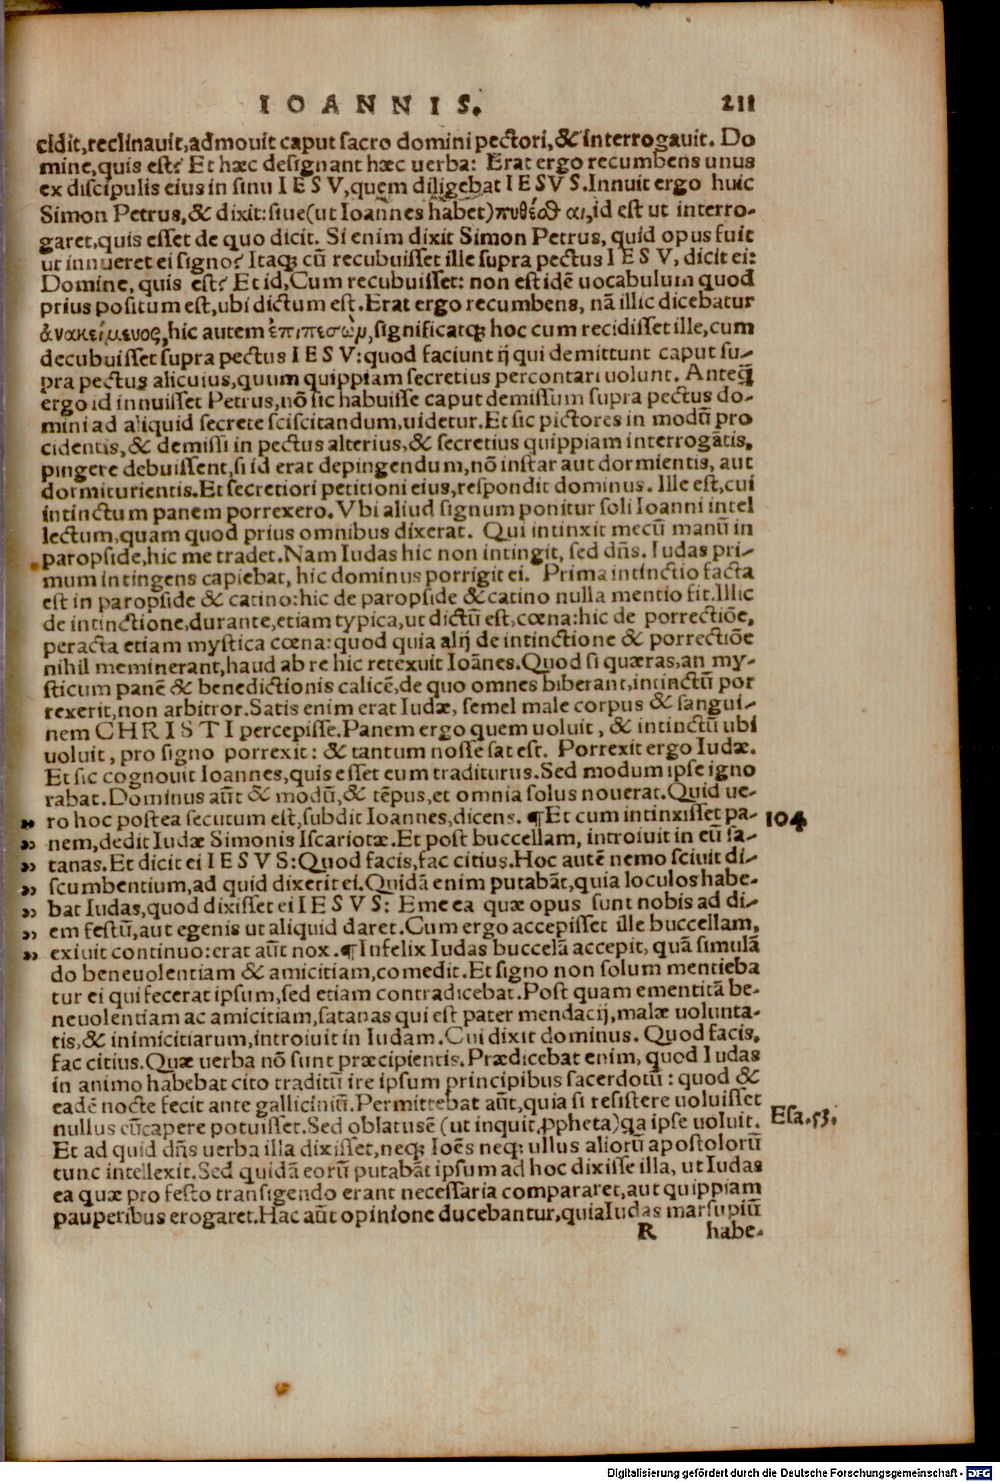 IOANNIS. 211
cidit,reclinavit,admovit caput sacro domini pectori,& interrogavit. Do
mine,quis est? Et hæc designant hæc uerba: Erat ergo recumbens unus
ex discipulis eius in sinu IESV,quem diligebat IESVS.Innuit ergo huic
Simon Petrus,& dixit:siue(ut Ioannes habet)πυθέσθαι,id est ut interro-
garet,quis esset de quo dicit. Si enim dixit Simon Petrus, quid opus fuit
ut innueret ei signo? Itaqꝫ cũ recubuisset ille supra pectus IESV, dicit ei:
Domine, quis est? Et id,Cum recubuisset: non est idẽ uocabulum quod
prius positum est,ubi dictum est.Erat ergo recumbens, nã illic dicebatur
ἀνακείμενος,hic autem ἐπιπεσὼν,significatqꝫ hoc cum recidisset ille,cum
decubuisset supra pectus IESV:quod faciunt ij qui demittunt caput su-
pra pectus alicuius,quum quippiam secretius percontari uolunt. Anteq̃
ergo id innuisset Petrus,nõ sic habuisse caput demissum supra pectus do-
mini ad aliquid secrete sciscitandum,uidetur.Et sic pictores in modũ pro
cidentis,& demissi in pectus alterius,& secretius quippiam interrogãtis,
pingere debuissent,si id erat depingendum,nõ instar aut dormientis, aut
dormiturientis.Et secretiori petitioni eius,respondit dominus. Ille est,cui
intinctum panem porrexero.Vbi aliud signum ponitur soli Ioanni intel
lectum,quam quod prius omnibus dixerat. Qui intinxit mecũ manũ in
paropside,hic me tradet.Nam Iudas hic non intingit, sed dñs. Iudas pri-
mum intingens capiebat, hic dominus porrigit ei. Prima intinctio facta
est in paropside & catino:hic de paropside & catino nulla mentio fit.Illic
de intinctione,durante,etiam typica,ut dictũ est,cœna:hic de porrectiõe,
peracta etiam mystica cœna:quod quia alij de intinctione & porrectiõe
nihil meminerant,haud ab re hic retexuit Ioãnes.Quod si quæras,an my-
sticum panẽ & benedictionis calicẽ,de quo omnes biberant,intinctũ por
rexerit,non arbitror.Satis enim erat Iudæ, semel male corpus & sangui-
nem CHRISTI percepisse.Panem ergo quem uoluit, & intinctũ ubi
uoluit, pro signo porrexit: & tantum nosse sat est. Porrexit ergo Iudæ.
Et sic cognouit Ioannes,quis esset eum traditurus.Sed modum ipse igno
rabat.Dominus aũt & modũ,& tẽpus,et omnia solus nouerat.Quid ue-
ro hoc postea secutum est,subdit Ioannes,dicens. ¶Et cum intinxisset pa- 104
nem,dedit Iudæ Simonis Iscariotæ.Et post buccellam, introiuit in eũ sa-
tanas.Et dicit ei IESVS:Quod facis,fac citius.Hoc autẽ nemo sciuit di-
scumbentium,ad quid dixerit ei.Quidã enim putabãt,quia loculos habe-
bat Iudas,quod dixisset ei IESVS: Eme ea quæ opus sunt nobis ad di-
em festũ,aut egenis ut aliquid daret.Cum ergo accepisset ille buccellam,
exiuit continuo:erat aũt nox.¶Infelix Iudas buccelã accepit, quã simulã
do beneuolentiam & amicitiam,comedit.Et signo non solum mentieba
tur ei qui fecerat ipsum,sed etiam contradicebat.Post quam ementitã be-
neuolentiam ac amicitiam,satanas qui est pater mendacij,malæ uolunta-
tis,& inimicitiarum,introiuit in Iudam.Cui dixit dominus. Quod facis,
fac citius.Quæ uerba nõ sunt præcipientis.Prædicebat enim, quod Iudas
in animo habebat cito traditũ ire ipsum principibus sacerdotũ: quod &
eadẽ nocte fecit ante galliciniũ.Permittebat aũt,quia si resistere uoluisset
nullus eũ capere potuisset.Sed oblatus ẽ (ut inquit ꝓpheta) ꝗa ipse uoluit. Esa.53.
Et ad quid dñs uerba illa dixisset,neqꝫ Ioẽs neqꝫ ullus aliorũ apostolorũ
tunc intellexit.Sed quidã eorũ putabãt ipsum ad hoc dixisse illa, ut Iudas
ea quæ pro festo transigendo erant necessaria compararet,aut quippiam
pauperibus erogaret.Hac aũt opinione ducebantur,quia Iudas marsupiũ
R habe-
Digitalisierung gefördert durch die Deutsche Forschungsgemeinschaft - DFG